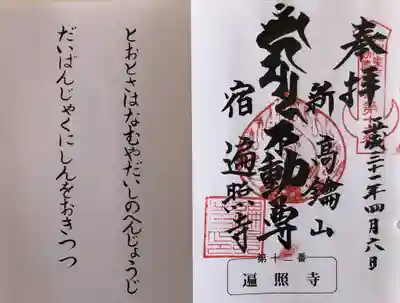 奉拝
平成三十一年四月六日
新高山
不動尊
宿遍照寺
第十二番
遍照寺
とおとさはなむやだいしのへんじょうじ
だいばんじゃくにしんをおきつつ